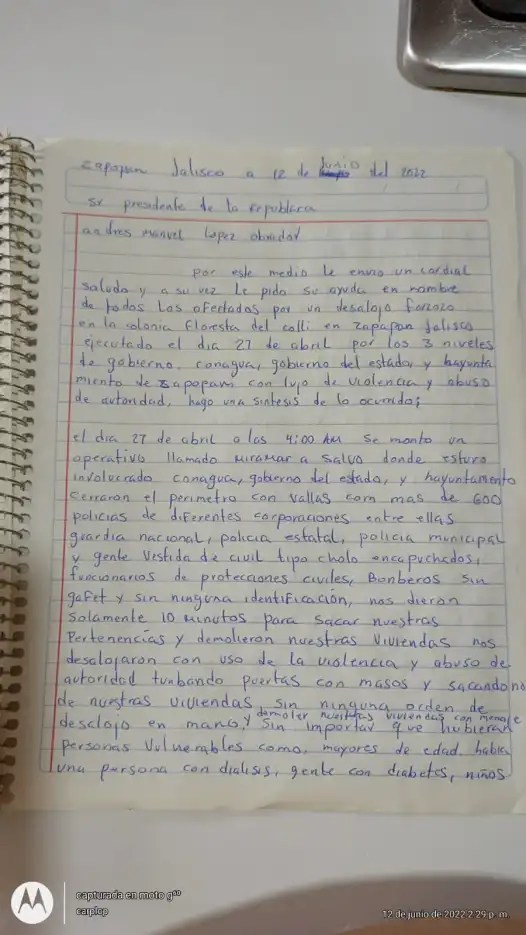 zapopan Jalisco a 12 de Junio del 2022
Sr presidente de la republica
andres manuel lopez obrador
por este medio le envio un cordial
saludo y a su vez le pido su ayuda en nombre
de todos los afectados por un desalojo forzozo
en la colonia floresta del colli en zapopan Jalisco
ejecutado el dia 27 de abril por los 3 niveles
de gobierno, conagua, gobierno del estado, y hayunta
miento de zapopam con lujo de violencia y abuso
de autoridad, hago una sintesis de lo ocurrido;
el dia 27 de abril a las 4:00 AM se monto un
operativo llamado miramar a salvo donde estuvo
involucrado conagua, gobierno del estado, y hayuntamento
cerraron el perimetro con vallas com mas de 600
policias de diferentes corporaciones entre ellas
guardia nacional, policia estatal, policia municipal
y gente vestida de civil tipo cholo encapuchados,
funcionarios de protecciones civiles, Bomberos sin
gafet y sin ninguna identificación, nos dieron
solamente 10 minutos para sacar nuestras
Pertenencias y demolieron nuestras viviendas nos
desalojaron con uso de la violencia y abuso de
autoridad tumbando puertas con masos y sacandonos
de nuestras viviendas sin ninguna orden de
desalojo en mano, y demoler nuestras viviendas con menaje sin importar que hubieran
personas vulnerables como, mayores de edad, habia
una persona con dialisis, gente con diabetes, niños
capturada en moto g⁵⁰
carplop
12 de junio de 2022 2:29 p. m.